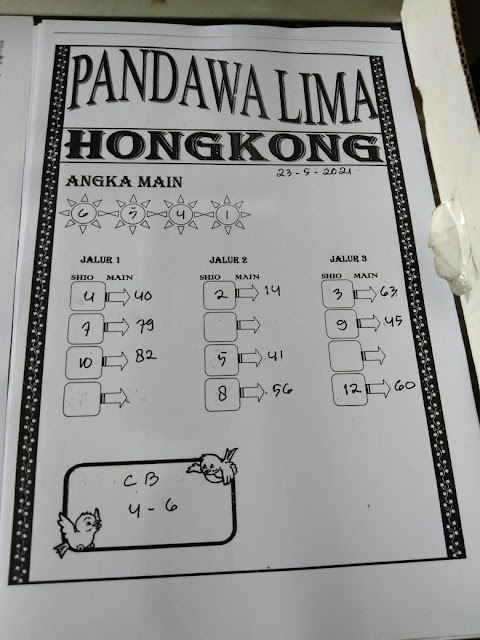 PANDAWA LIMA
HONGKONG
23-5-2021
ANGKA MAIN
6 5 4 1
JALUR 1 JALUR 2 JALUR 3
SHIO MAIN SHIO MAIN SHIO MAIN
4 40 2 14 3 63
7 79 9 45
10 82 5 41
8 56 12 60
CB
4-6